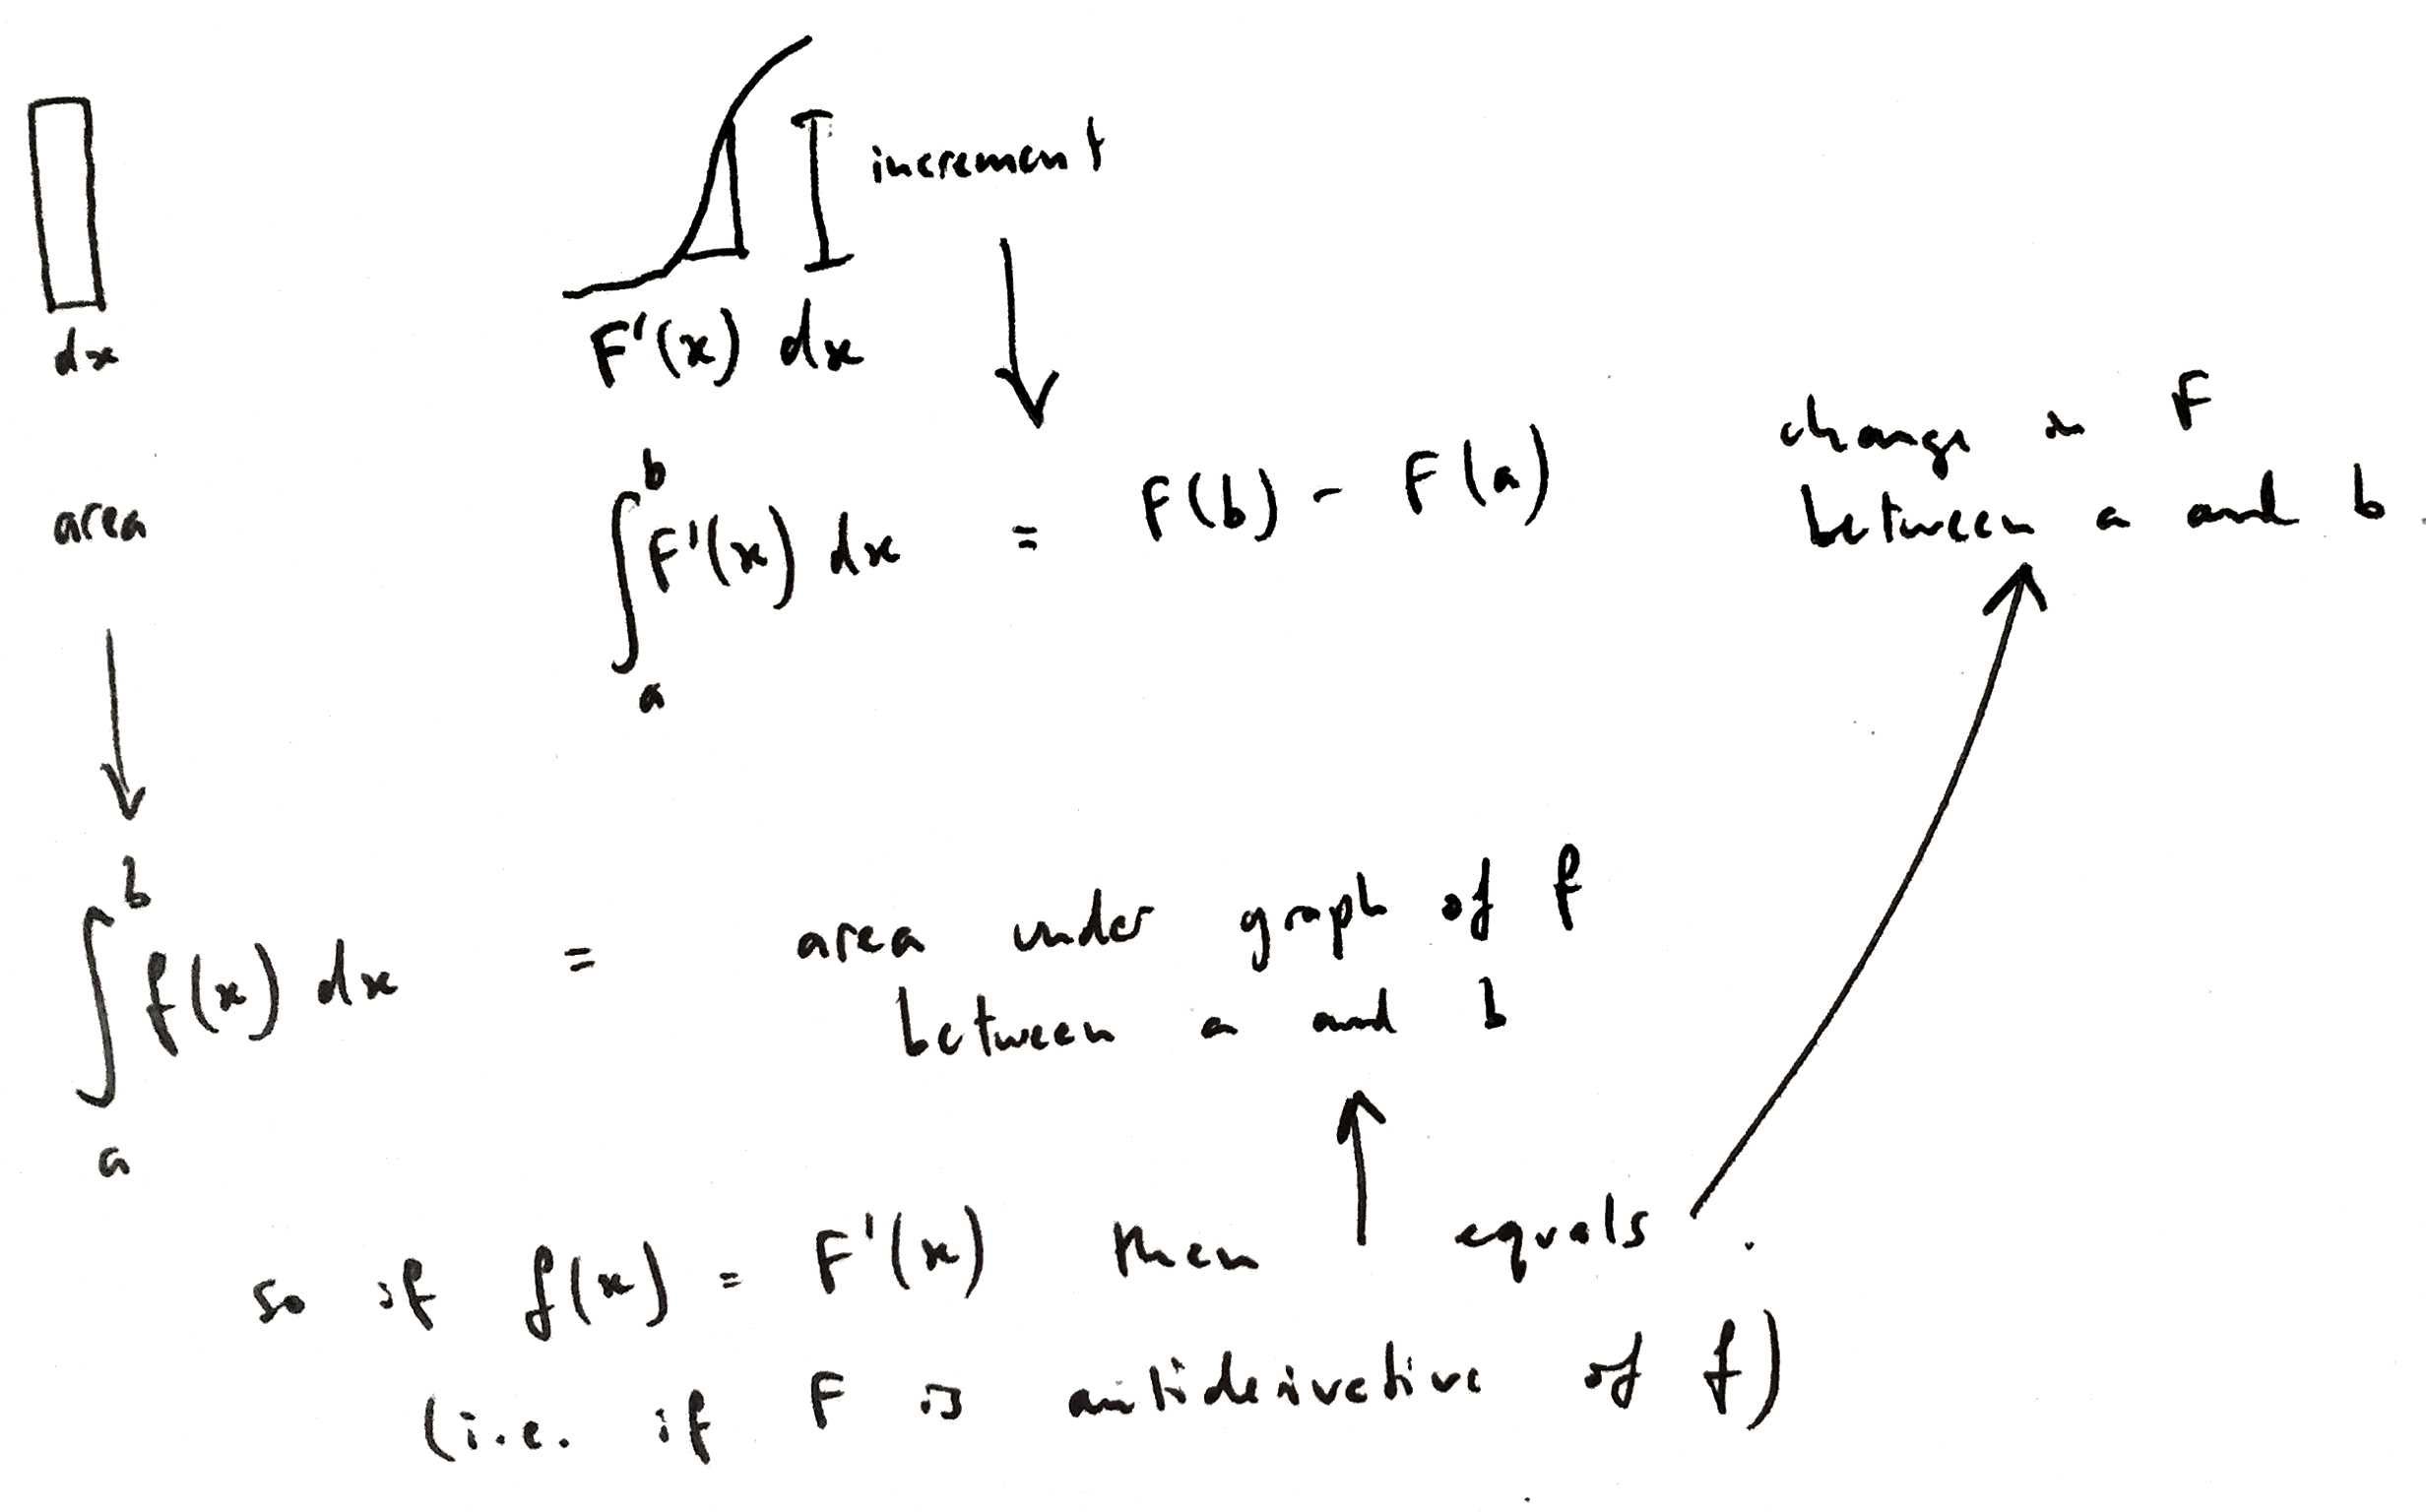 increment
dx
F'(x) dx
area
∫_a^b F'(x) dx = F(b) - F(a)
change in F
between a and b.
∫_a^b f(x) dx = area under graph of f
between a and b
so if f(x) = F'(x) then ↑ equals ↗.
(i.e. if F is antiderivative of f)